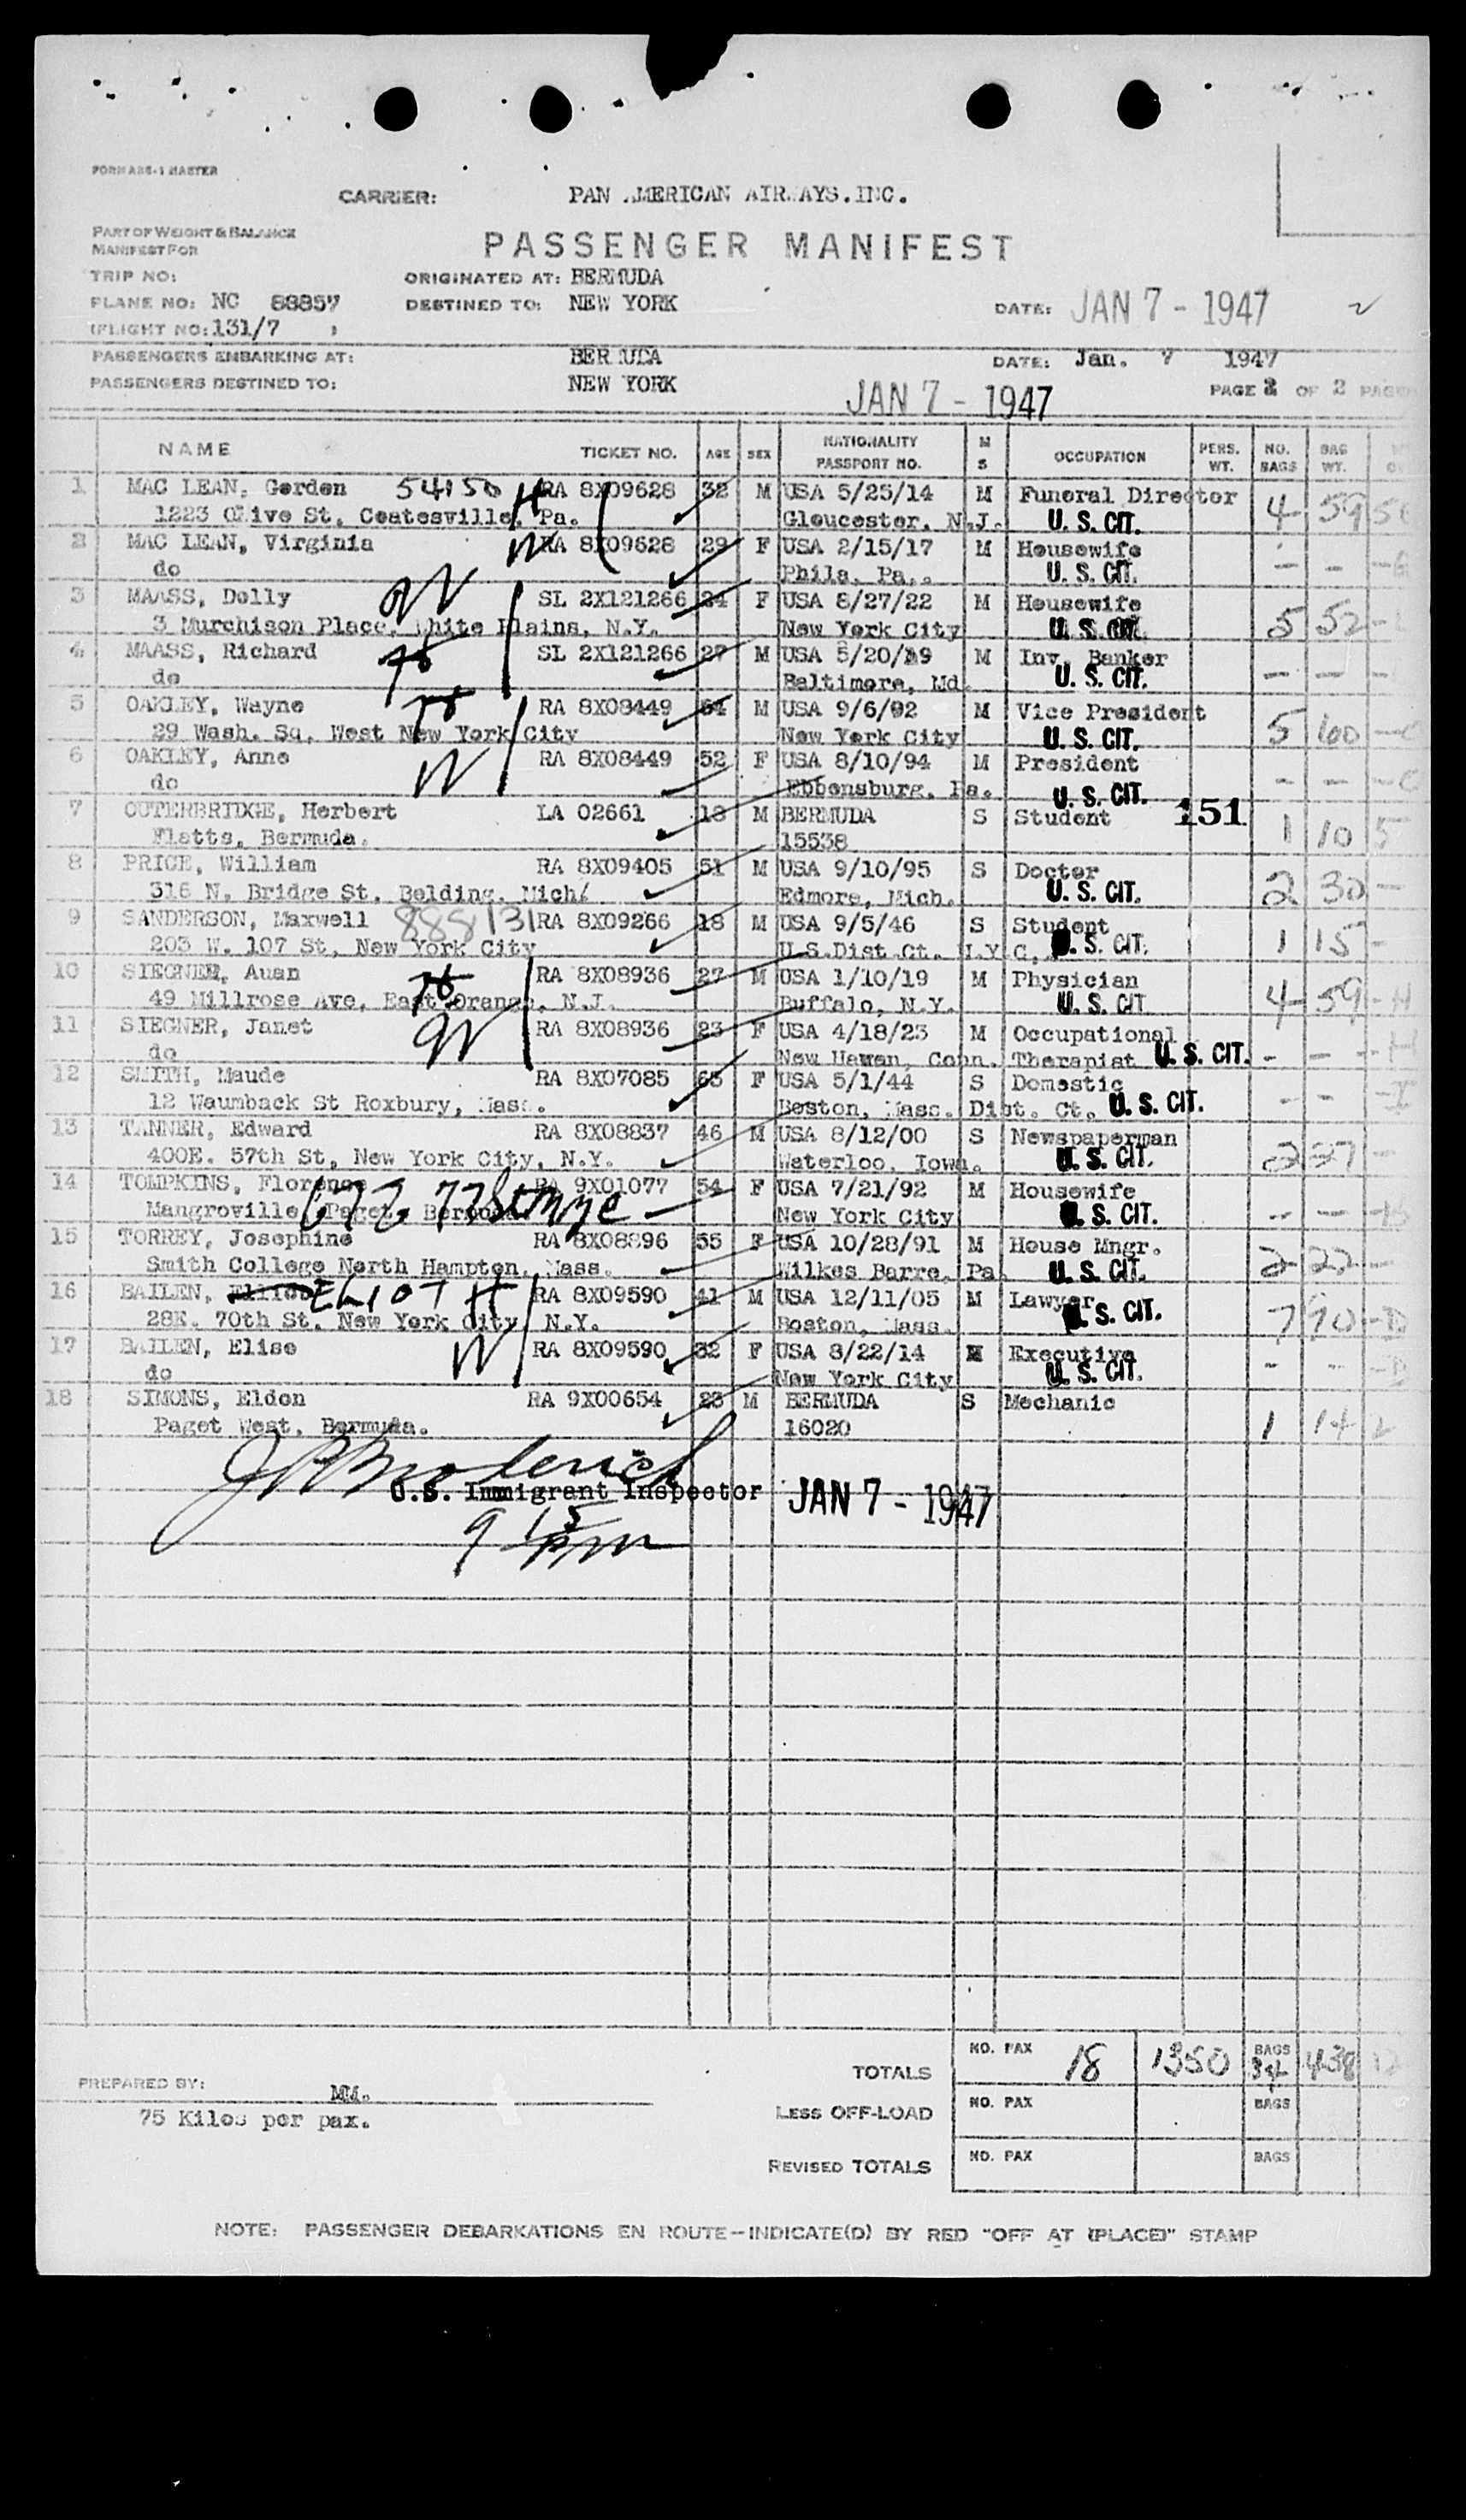 FORM ABS-1 MASTER
CARRIER: PAN AMERICAN AIRWAYS.INC.
PART OF WEIGHT & BALANCE
MANIFEST FOR
PASSENGER MANIFEST
TRIP NO:
ORIGINATED AT: BERMUDA
PLANE NO: NC 88857
DESTINED TO: NEW YORK
DATE: JAN 7 - 1947
(FLIGHT NO: 131/7 )
PASSENGERS EMBARKING AT: BERMUDA
DATE: Jan. 7 1947
PASSENGERS DESTINED TO: NEW YORK
PAGE 2 OF 2 PAGES
JAN 7 - 1947
NAME TICKET NO. AGE SEX NATIONALITY PASSPORT NO. M S OCCUPATION PERS. WT. NO. BAGS BAG WT.
1 MAC LEAN, Gordon 54150 H RA 8X09628 32 M USA 5/25/14 M Funeral Director 4 59
1223 Olive St, Coatesville, Pa. Gloucester, N.J. U. S. CIT.
2 MAC LEAN, Virginia W RA 8X09628 29 F USA 2/15/17 M Housewife - -
do Phila, Pa,. U. S. CIT.
3 MAASS, Dolly W SL 2X121266 24 F USA 8/27/22 M Housewife 5 52
3 Murchison Place, White Plains, N.Y. New York City U. S. CIT.
4 MAASS, Richard SL 2X121266 27 M USA 5/20/19 M Inv. Banker - -
do Baltimore, Md. U. S. CIT.
5 OAKLEY, Wayne RA 8X08449 54 M USA 9/6/92 M Vice President 5 100
29 Wash. Sq, West New York City New York City U. S. CIT.
6 OAKLEY, Anne W RA 8X08449 52 F USA 8/10/94 M President - -
do Ebbensburg, Pa. U. S. CIT.
7 OUTERBRIDGE, Herbert LA 02661 18 M BERMUDA S Student 151 1 10 5
Flatts, Bermuda. 15538
8 PRICE, William RA 8X09405 51 M USA 9/10/95 S Doctor 2 30 -
316 N, Bridge St, Belding, Mich. Edmore, Mich. U. S. CIT.
9 SANDERSON, Maxwell 888131 RA 8X09266 18 M USA 9/5/46 S Student 1 15 -
203 W. 107 St, New York City U.S.Dist.Ct. N.Y.C. U. S. CIT.
10 SIEGNER, Auan RA 8X08936 27 M USA 1/10/19 M Physician 4 59 - H
49 Millrose Ave, East Orange, N.J. Buffalo, N.Y. U. S. CIT
11 SIEGNER, Janet W RA 8X08936 23 F USA 4/18/23 M Occupational - - - H
do New Hawen, Conn. Therapist U. S. CIT.
12 SMITH, Maude RA 8X07085 65 F USA 5/1/44 S Domestic - - - I
12 Waumback St Roxbury, Mass. Boston, Mass. Dist. Ct, U. S. CIT.
13 TANNER, Edward RA 8X08837 46 M USA 8/12/00 S Newspaperman 2 37 -
400E. 57th St, New York City, N.Y. Waterloo, Iowa. U. S. CIT.
14 TOMPKINS, Florence RA 9X01077 54 F USA 7/21/92 M Housewife - -
Mangroville, Paget, Bermuda. New York City U. S. CIT.
15 TORREY, Josephine RA 8X08896 55 F USA 10/28/91 M House Mngr. 2 22 -
Smith College North Hampton, Mass. Wilkes Barre, Pa. U. S. CIT.
16 BAILEN, ELIOT H RA 8X09590 41 M USA 12/11/05 M Lawyer 7 70 - D
28E. 70th St, New York City, N.Y. Boston, Mass. U. S. CIT.
17 BAILEN, Elise W RA 8X09590 32 F USA 8/22/14 M Executive - -
do New York City U. S. CIT.
18 SIMONS, Eldon RA 9X00654 23 M BERMUDA S Mechanic 1 14 2
Paget West, Bermuda. 16020
U.S. Immigrant Inspector JAN 7 - 1947
9 15 pm
TOTALS NO. PAX 18 1350 BAGS 34 438
PREPARED BY: MM.
75 Kilos per pax.
LESS OFF-LOAD NO. PAX BAGS
REVISED TOTALS NO. PAX BAGS
NOTE: PASSENGER DEBARKATIONS EN ROUTE—INDICATE(D) BY RED "OFF AT (PLACE)" STAMP